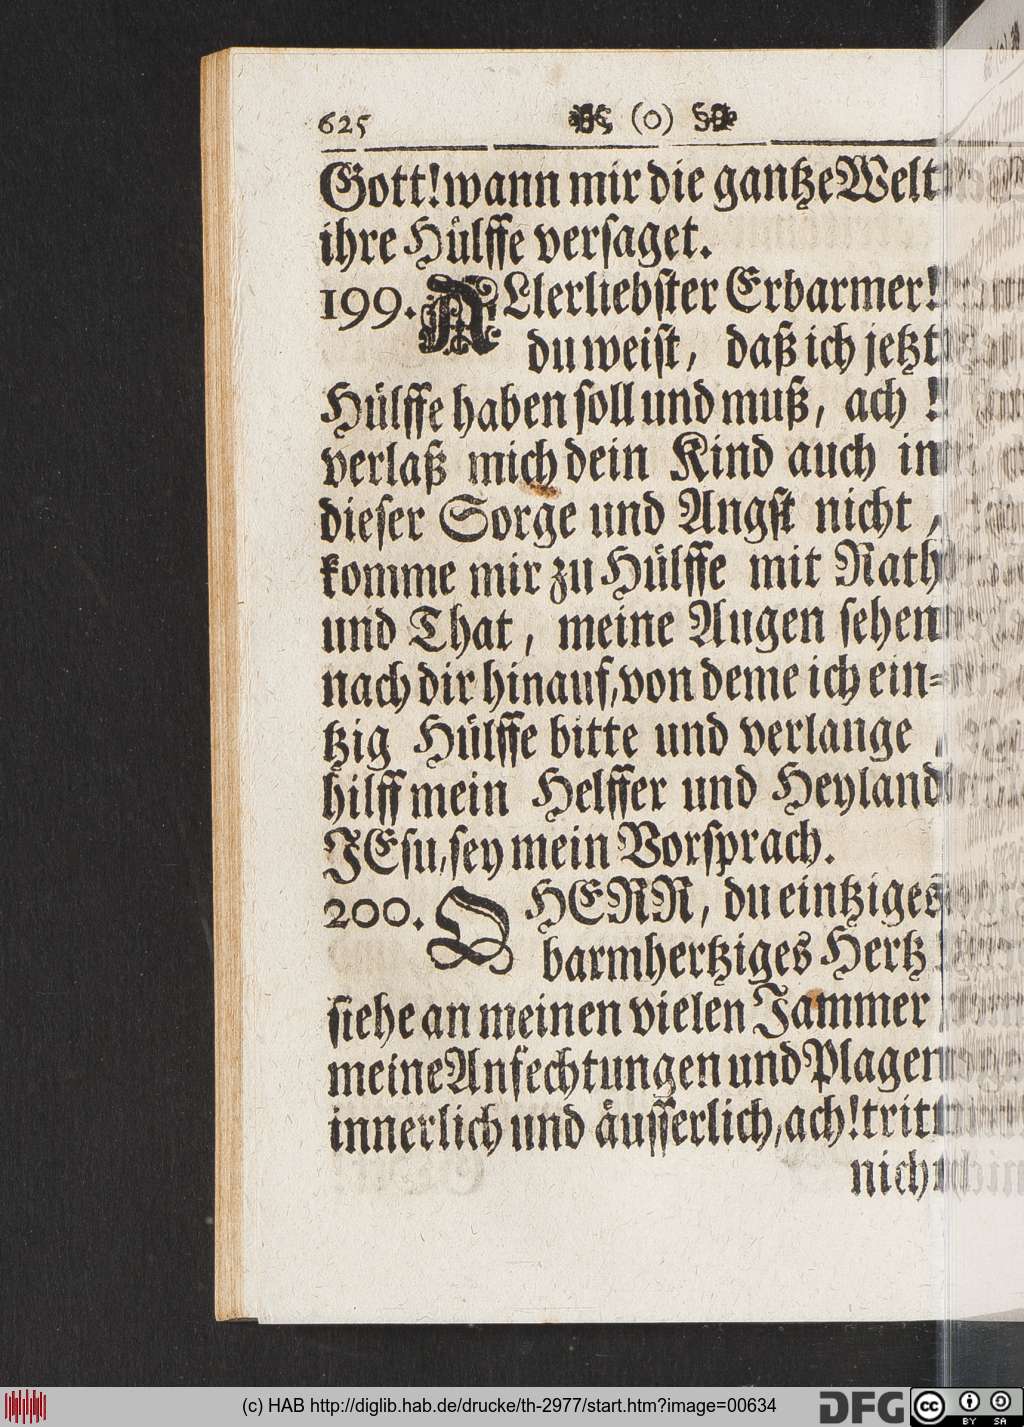 625 (o)
Gott! wann mir die gantze Welt
ihre Hülffe versaget.
199. ALlerliebster Erbarmer!
du weist, daß ich jetzt
Hülffe haben soll und muß, ach !
verlaß mich dein Kind auch in
dieser Sorge und Angst nicht ,
komme mir zu Hülffe mit Rath
und That, meine Augen sehen
nach dir hinauf, von deme ich ein-
tzig Hülffe bitte und verlange ,
hilff mein Helffer und Heyland
JEsu, sey mein Vorsprach.
200. O HERR, du eintziges
barmhertziges Hertz !
siehe an meinen vielen Jammer ,
meine Anfechtungen und Plagen
innerlich und äusserlich, ach! tritt
nich
(c) HAB http://diglib.hab.de/drucke/th-2977/start.htm?image=00634
DFG
cc BY SA